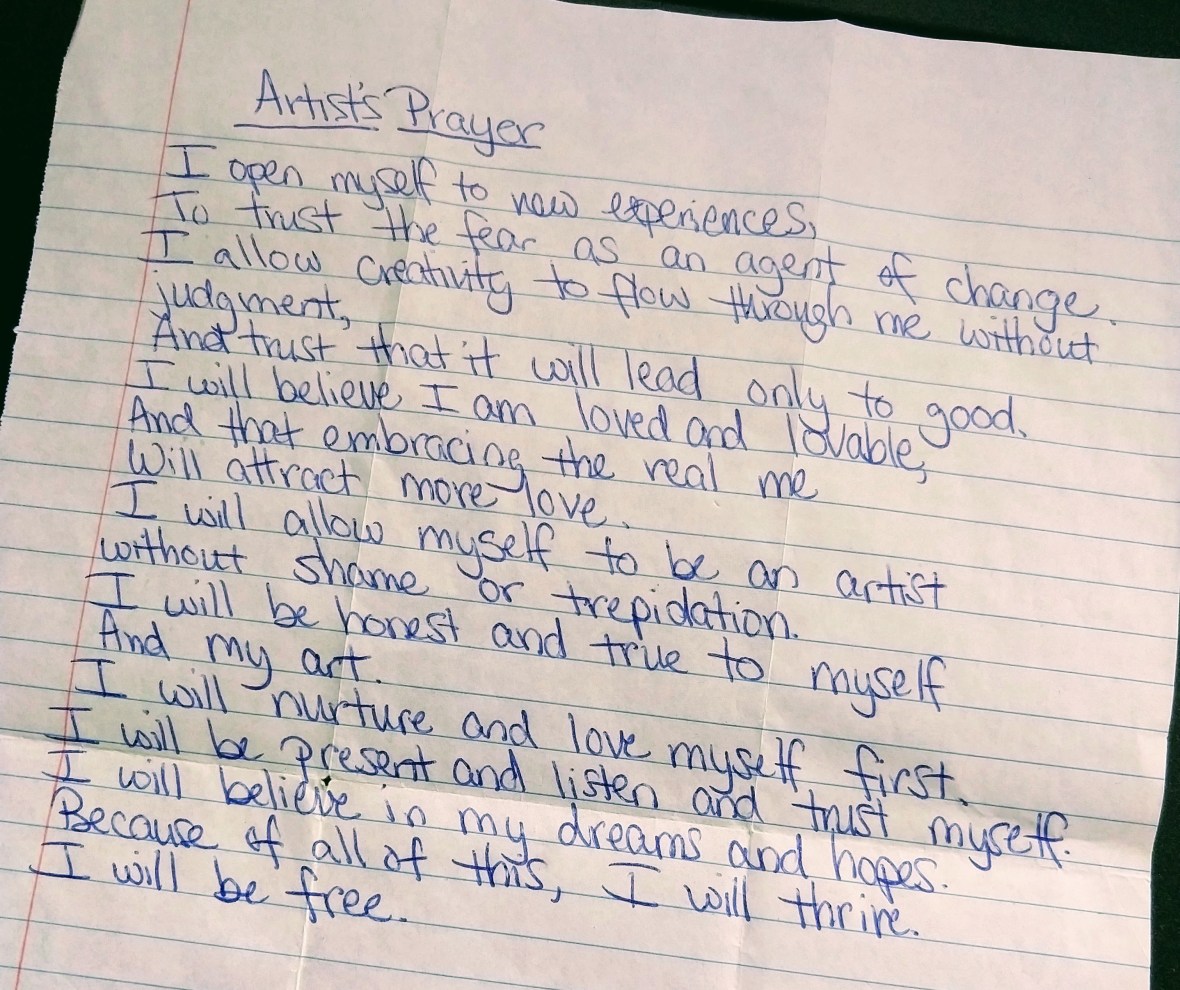 Artist's Prayer
I open myself to new experiences,
To trust the fear as an agent of change.
I allow creativity to flow through me without
judgment,
And trust that it will lead only to good.
I will believe I am loved and lovable,
And that embracing the real me
Will attract more love.
I will allow myself to be an artist
without shame or trepidation.
I will be honest and true to myself
And my art.
I will nurture and love myself first.
I will be present and listen and trust myself.
I will believe in my dreams and hopes.
Because of all of this, I will thrive.
I will be free.